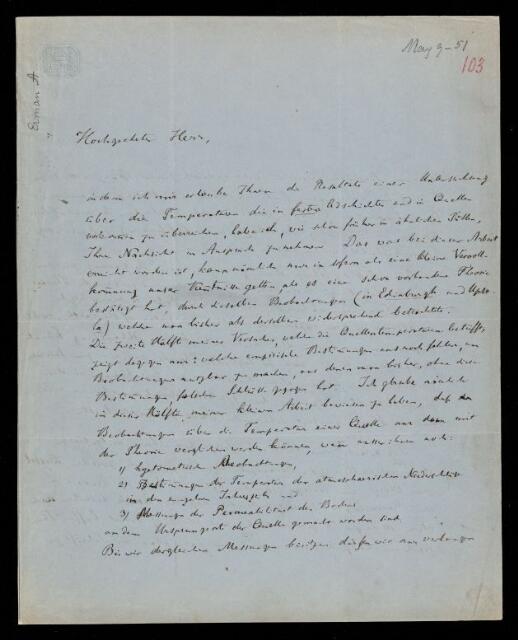 May 9-51
103
Erman A
Hochgeehrter Herr,
indem ich mir erlaube Ihnen die Resultate einer Untersuchung
über die Temperaturen die in festen Erdschichten und in Quellen
vorkommen zu überreichen, habe ich, wie schon früher in ähnlichen Fällen,
Ihre Nachsicht in Anspruch zu nehmen. Das was bei dieser Arbeit
erreicht worden ist, kann nämlich nur in sofern als eine kleine Vervoll-
kommnung unsrer Kenntnisse gelten als es eine schon vorhandne Theorie
bestätigt hat durch dieselben Beobachtungen (in Edinburgh und Upsa-
la) welche man bisher als derselben widersprechend betrachtete.
Die zweite Hälfte meines Versuches, welche die Quellentemperaturen betrifft,
zeigt dagegen nur: welche empirische Bestimmungen uns noch fehlen, um
Beobachtungen nutzbar zu machen, aus denen man bisher, ohne diese
Bestimmungen, falsche Schlüsse gezogen hat. Ich glaube nämlich
in dieser Hälfte meiner kleinen Arbeit bewiesen zu haben, daß die
Beobachtungen über die Temperatur einer Quelle nur dann mit
der Theorie verglichen werden können, wenn ausser ihnen auch:
1) hyetometrische Beobachtungen,
2) Bestimmungen der Temperatur der atmosphaerischen Niederschläge
in den einzelnen Jahreszeiten und
3) Messungen der Permeabilität des Bodens
an dem Ursprungsorte der Quelle gemacht worden sind.
Bis wir dergleichen Messungen besitzen dürfen wir nur verlangen